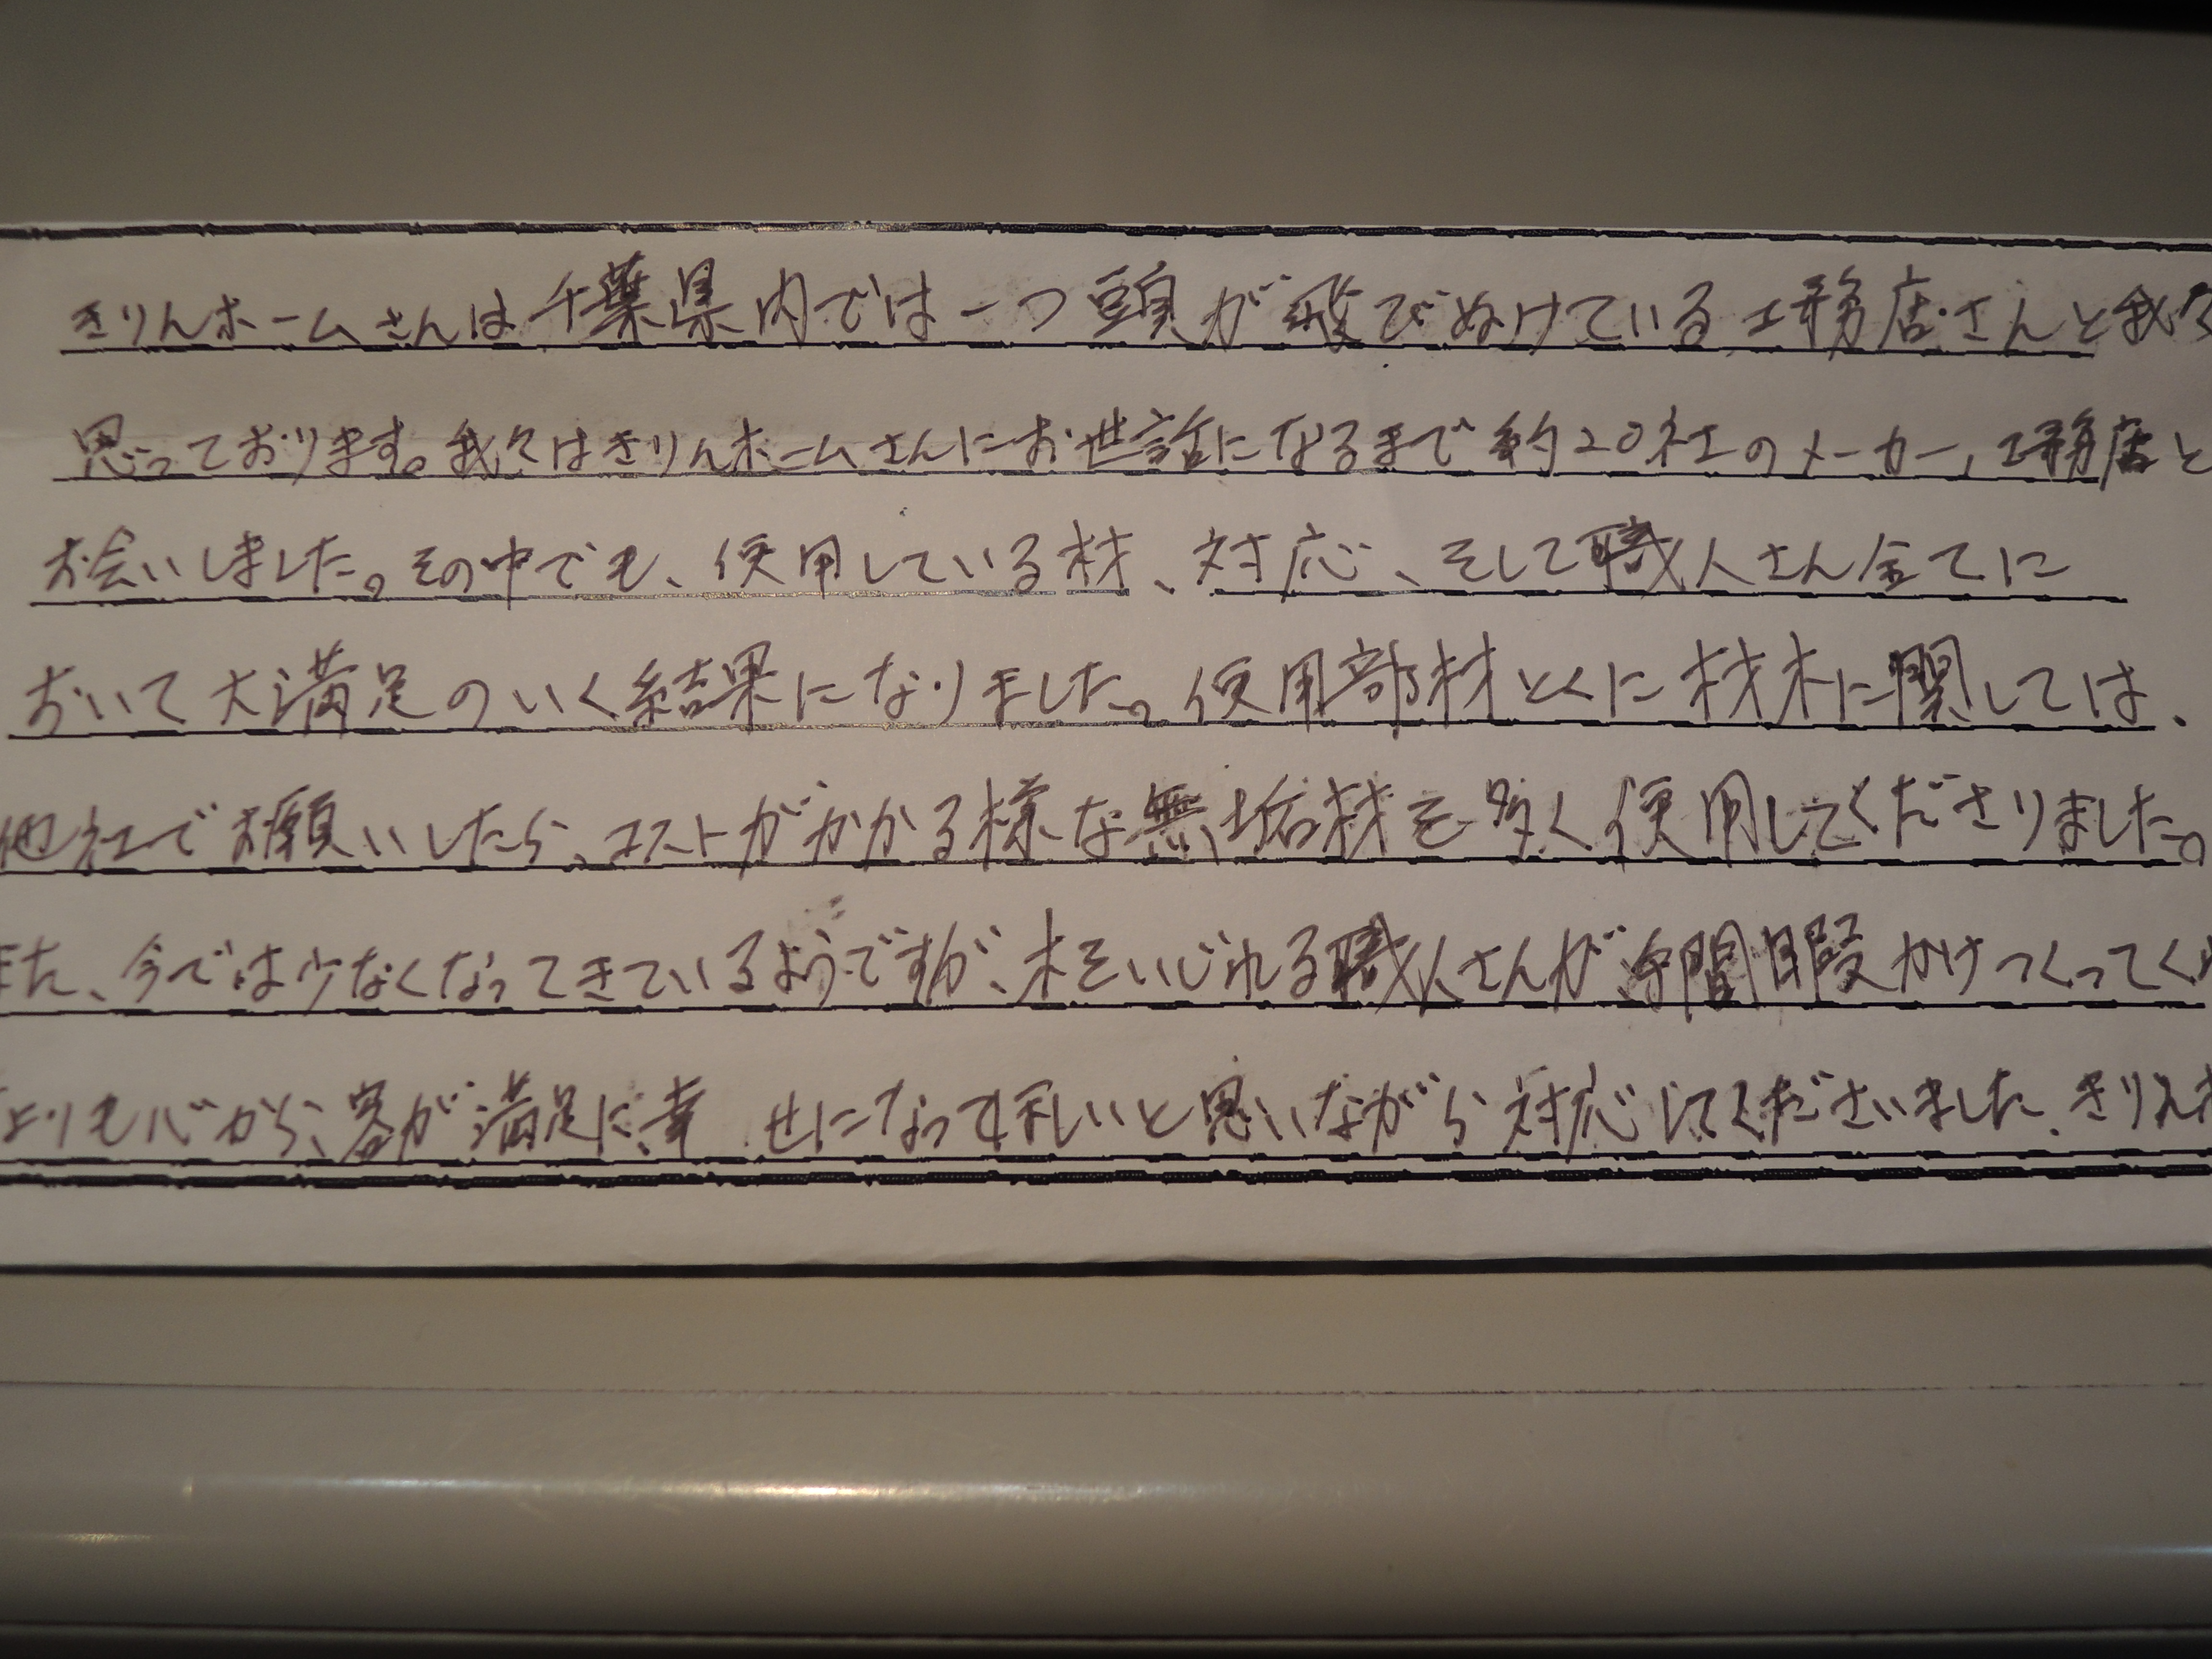 きりんホームさんは千葉県内では一つ頭が飛びぬけている工務店さんと我々
思っております。我々はきりんホームさんにお世話になるまで約20社のメーカー、工務店と
お会いしました。その中でも、使用している材、対応、そして職人さん全てに
おいて大満足のいく結果になりました。使用部材とくに材木に関しては、
他社でお願いしたら、コストがかかる様な無垢材を多く使用してくださりました。
また、今では少なくなってきているようですが、木をいじれる職人さんが手間暇かけつくってく
よりも心から、客が満足に、幸せになってほしいと思いながら対応してくださいました、きりん